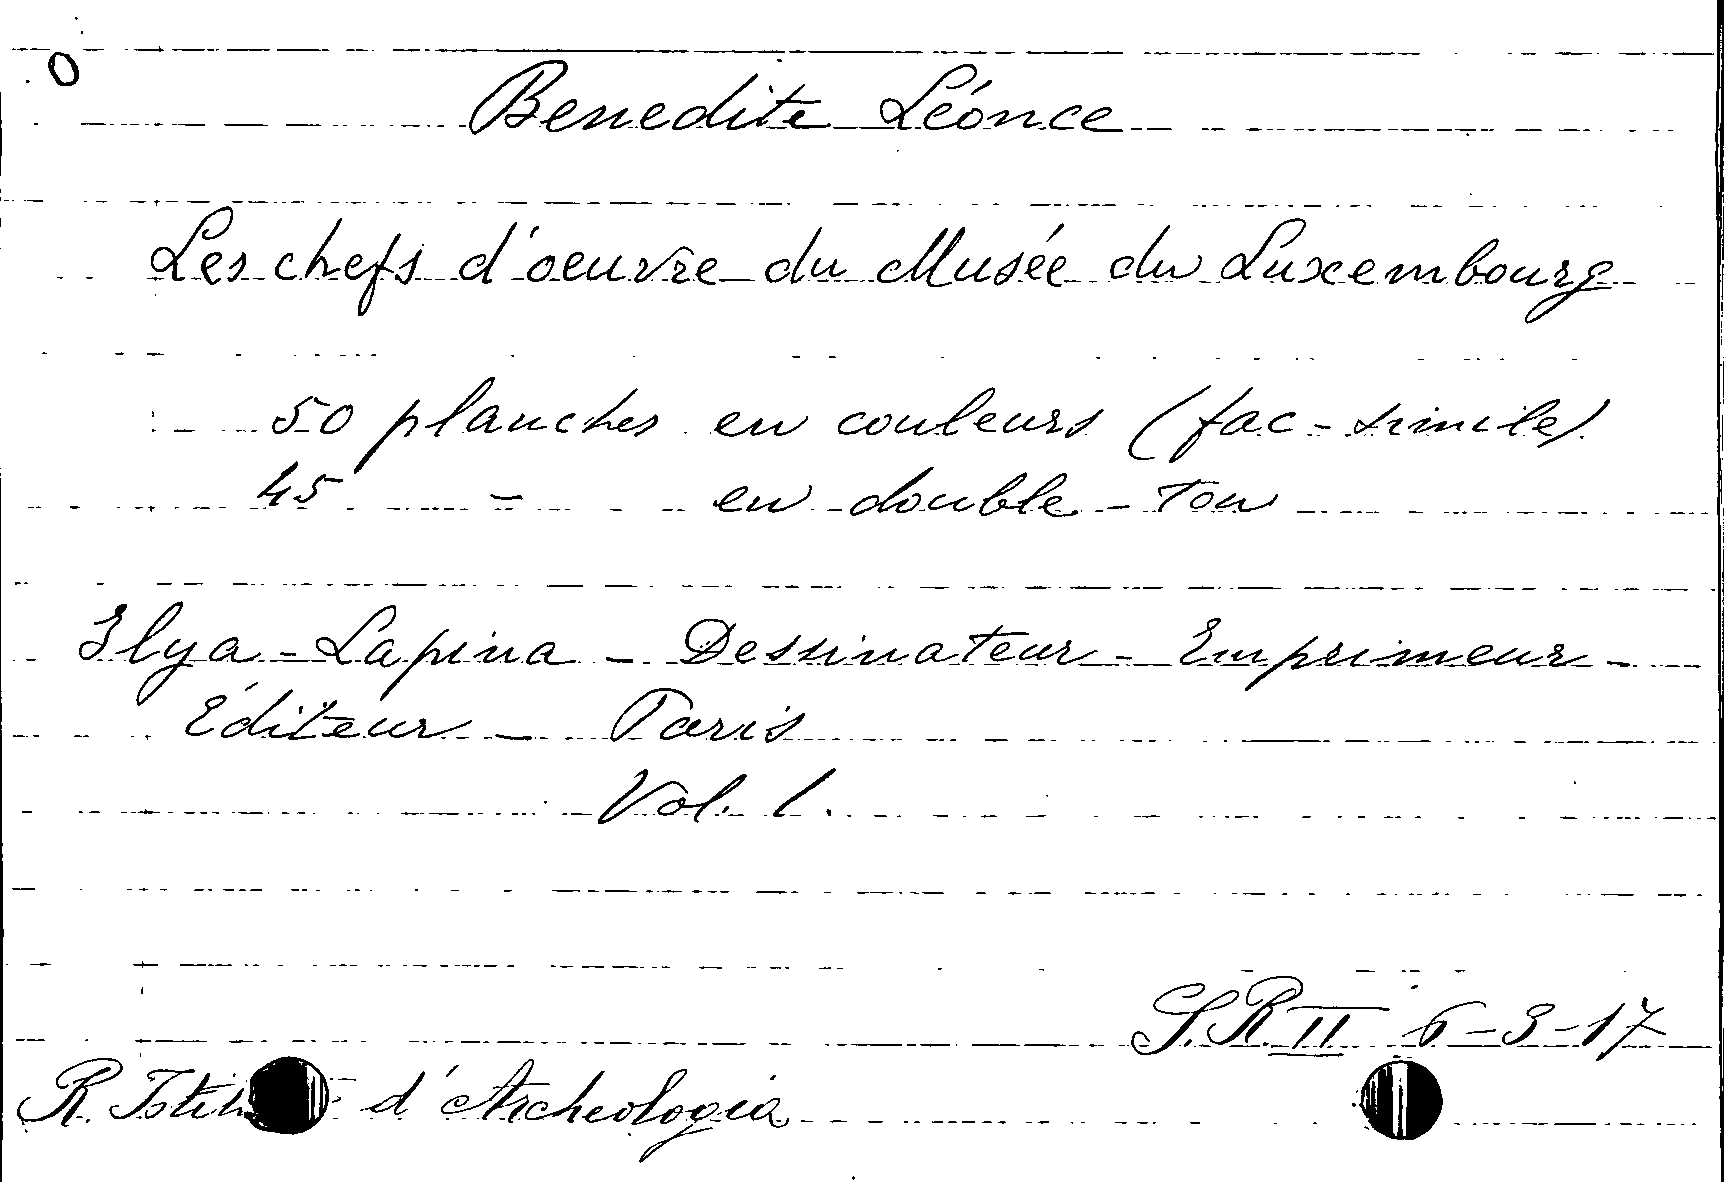 O
Benedite Léonce
Les chefs d'oeuvre du Musée du Luxembourg
50 planches en couleurs (fac-simile)
45 - en double-ton
Ilya-Lapina - Dessinateur - Imprimeur -
Éditeur - Paris
Vol. I.
S.R. II 6-3-17
R. d'Archeologia